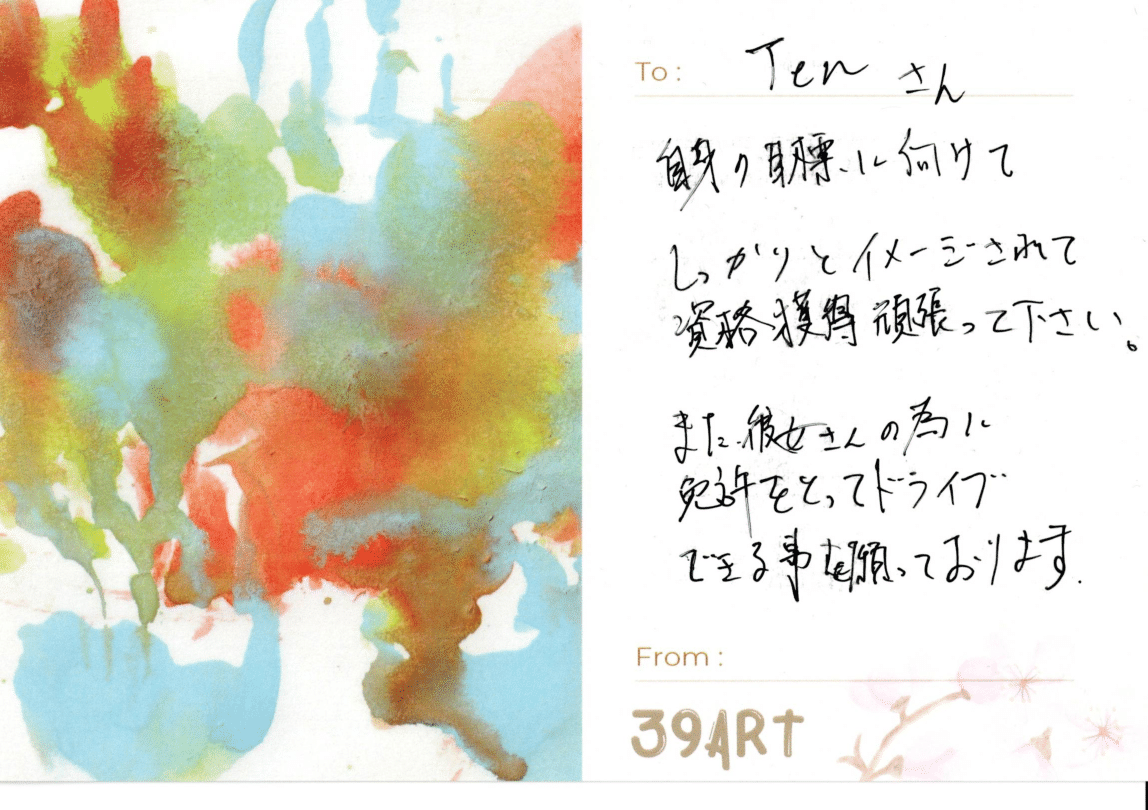 To : Ten さん
自身の目標に向けて
しっかりとイメージされて
資格獲得頑張って下さい。
また彼女さんの為に
免許をとってドライブ
できる事を願っております.
From :
39ART